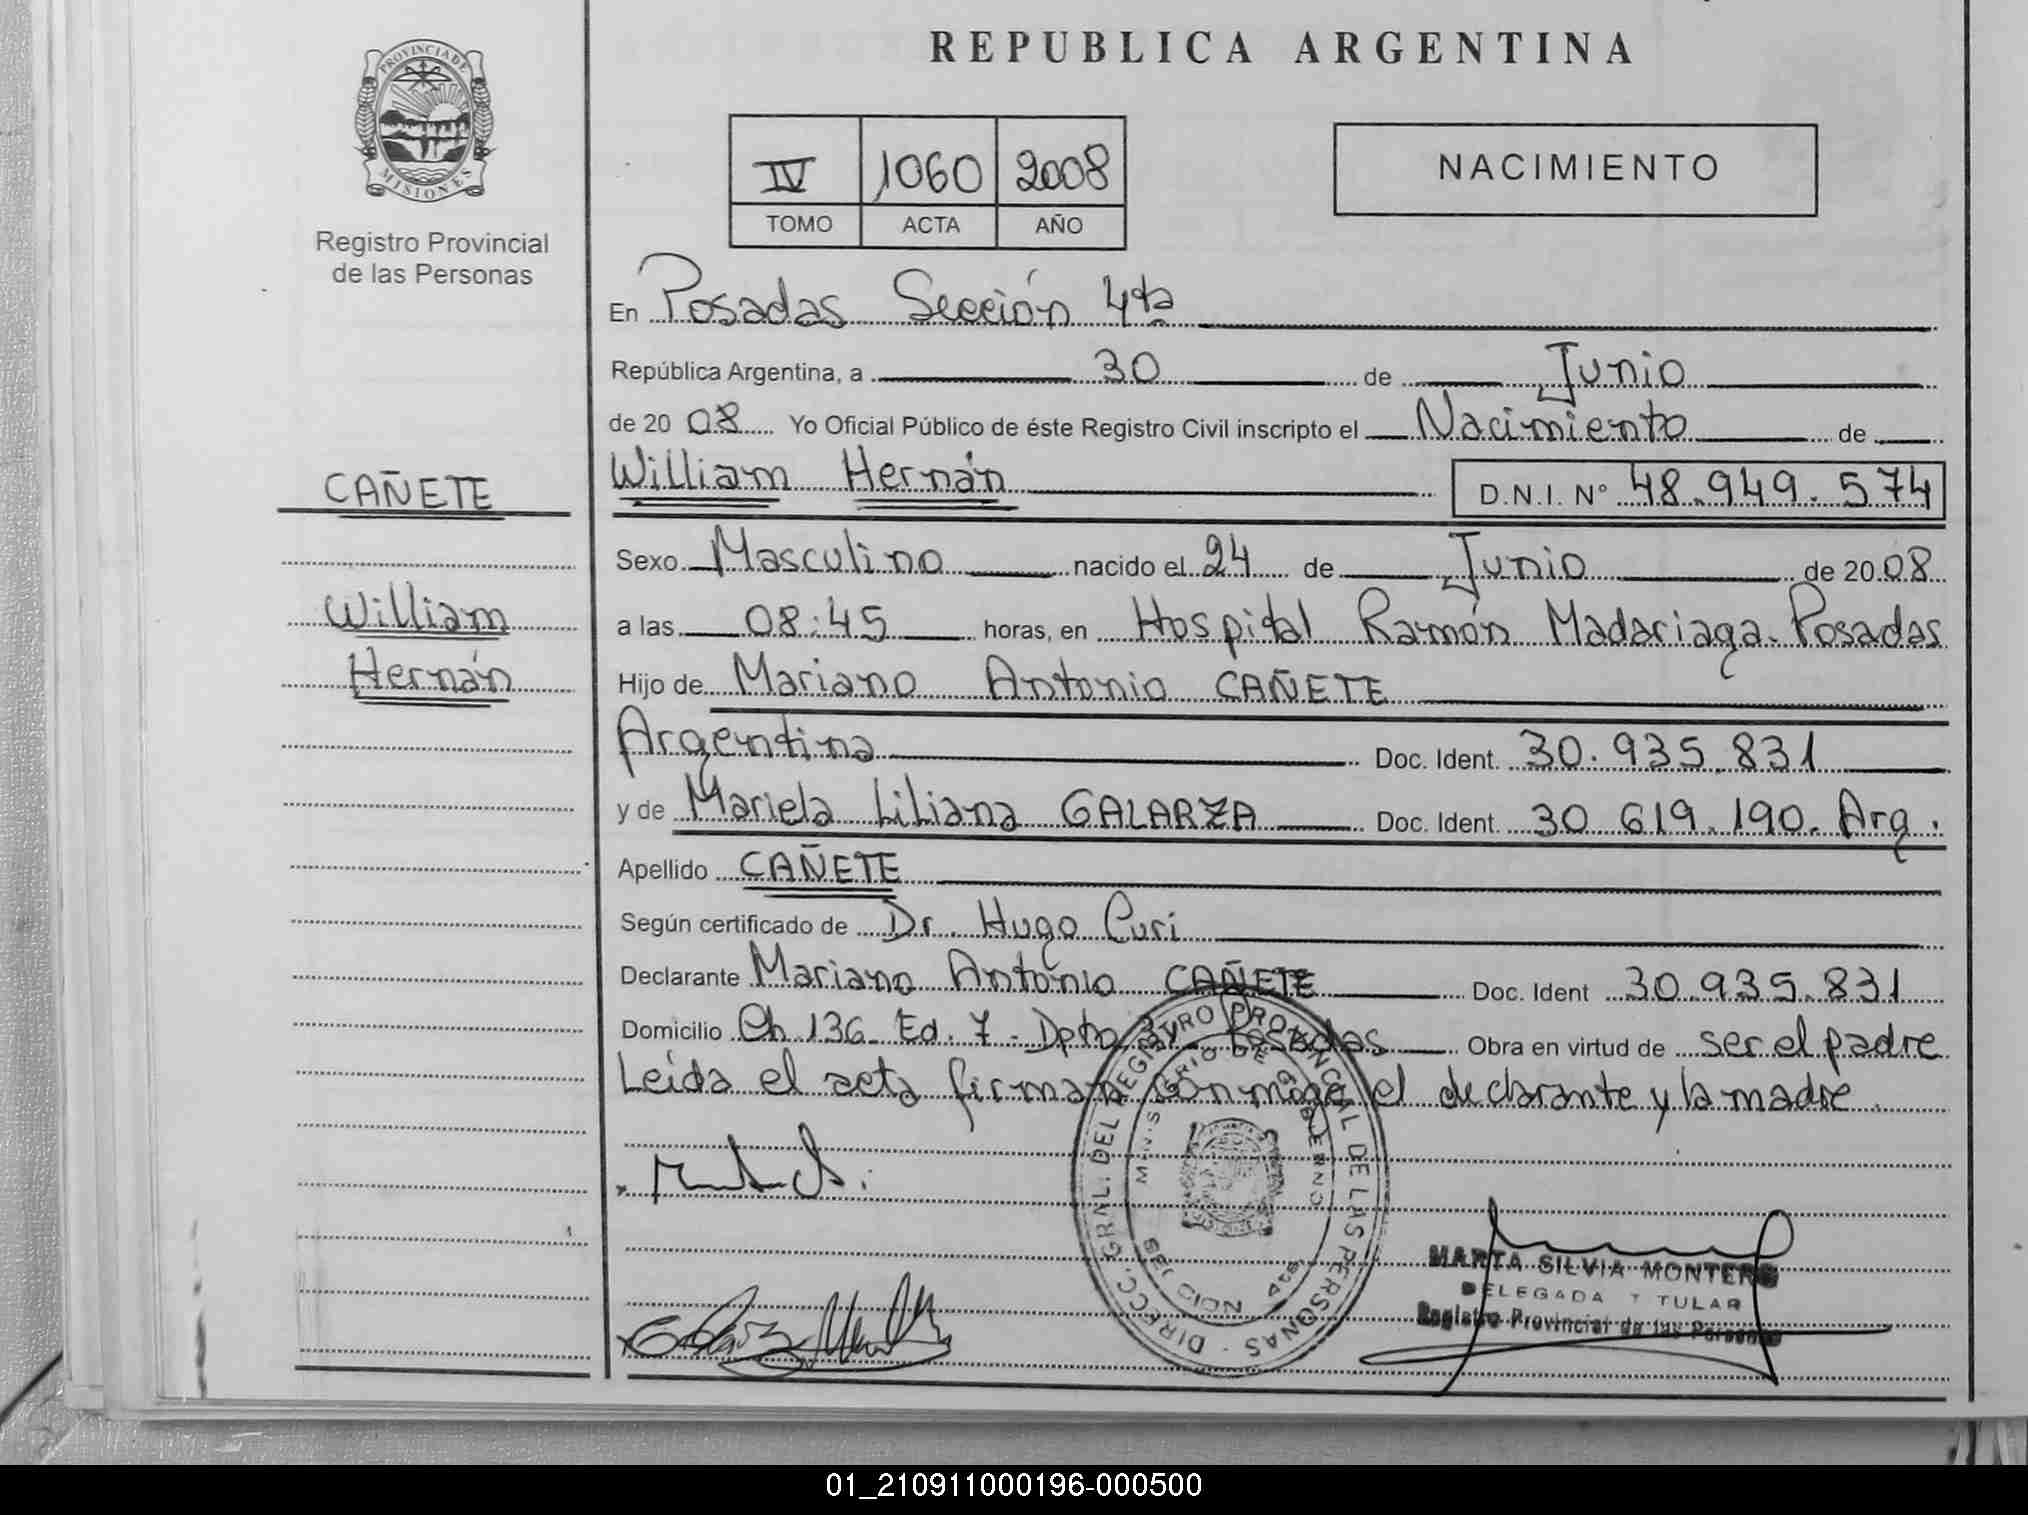 REPUBLICA ARGENTINA
PROVINCIA DE MISIONES
Registro Provincial
de las Personas
IV 1060 2008
TOMO ACTA AÑO
NACIMIENTO
En Posadas Sección 4ta
República Argentina, a 30 de Junio
de 2008 Yo Oficial Público de éste Registro Civil inscripto el Nacimiento de
William Hernán D.N.I. Nº 48.949.574
CAÑETE
William
Hernán
Sexo Masculino nacido el 24 de Junio de 2008
a las 08:45 horas, en Hospital Ramón Madariaga. Posadas
Hijo de Mariano Antonio CAÑETE
Argentina Doc. Ident. 30.935.831
y de Mariela Liliana GALARZA Doc. Ident. 30 619.190. Arg.
Apellido CAÑETE
Según certificado de Dr. Hugo Curi
Declarante Mariano Antonio CAÑETE Doc. Ident 30.935.831
Domicilio Ch. 136 Ed. 7 - Dpto Posadas Obra en virtud de ser el padre
Leída el acta firman conmigo el declarante y la madre.
DIRECC. GRAL. DEL REGISTRO PROVINCIAL DE LAS PERSONAS
MINISTERIO DE GOBIERNO
MARTA SILVIA MONTERO
DELEGADA TITULAR
Registro Provincial de las Personas
01_210911000196-000500